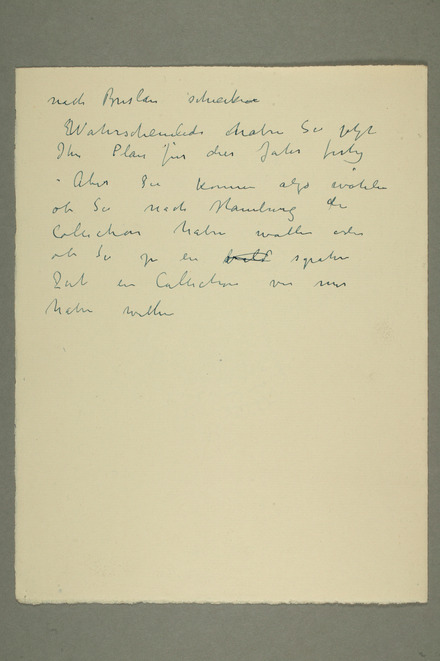 nach Breslau schicken
Wahrscheinlich haben Sie jetzt
Ihr Plan für dies Jahr fertig
- Aber Sie konnen also wählen
ob Sie nach Hamburg die
Collection haben wollen oder
ob Sie zu ein spatere
Zeit ein Collection von mir
haben wollen